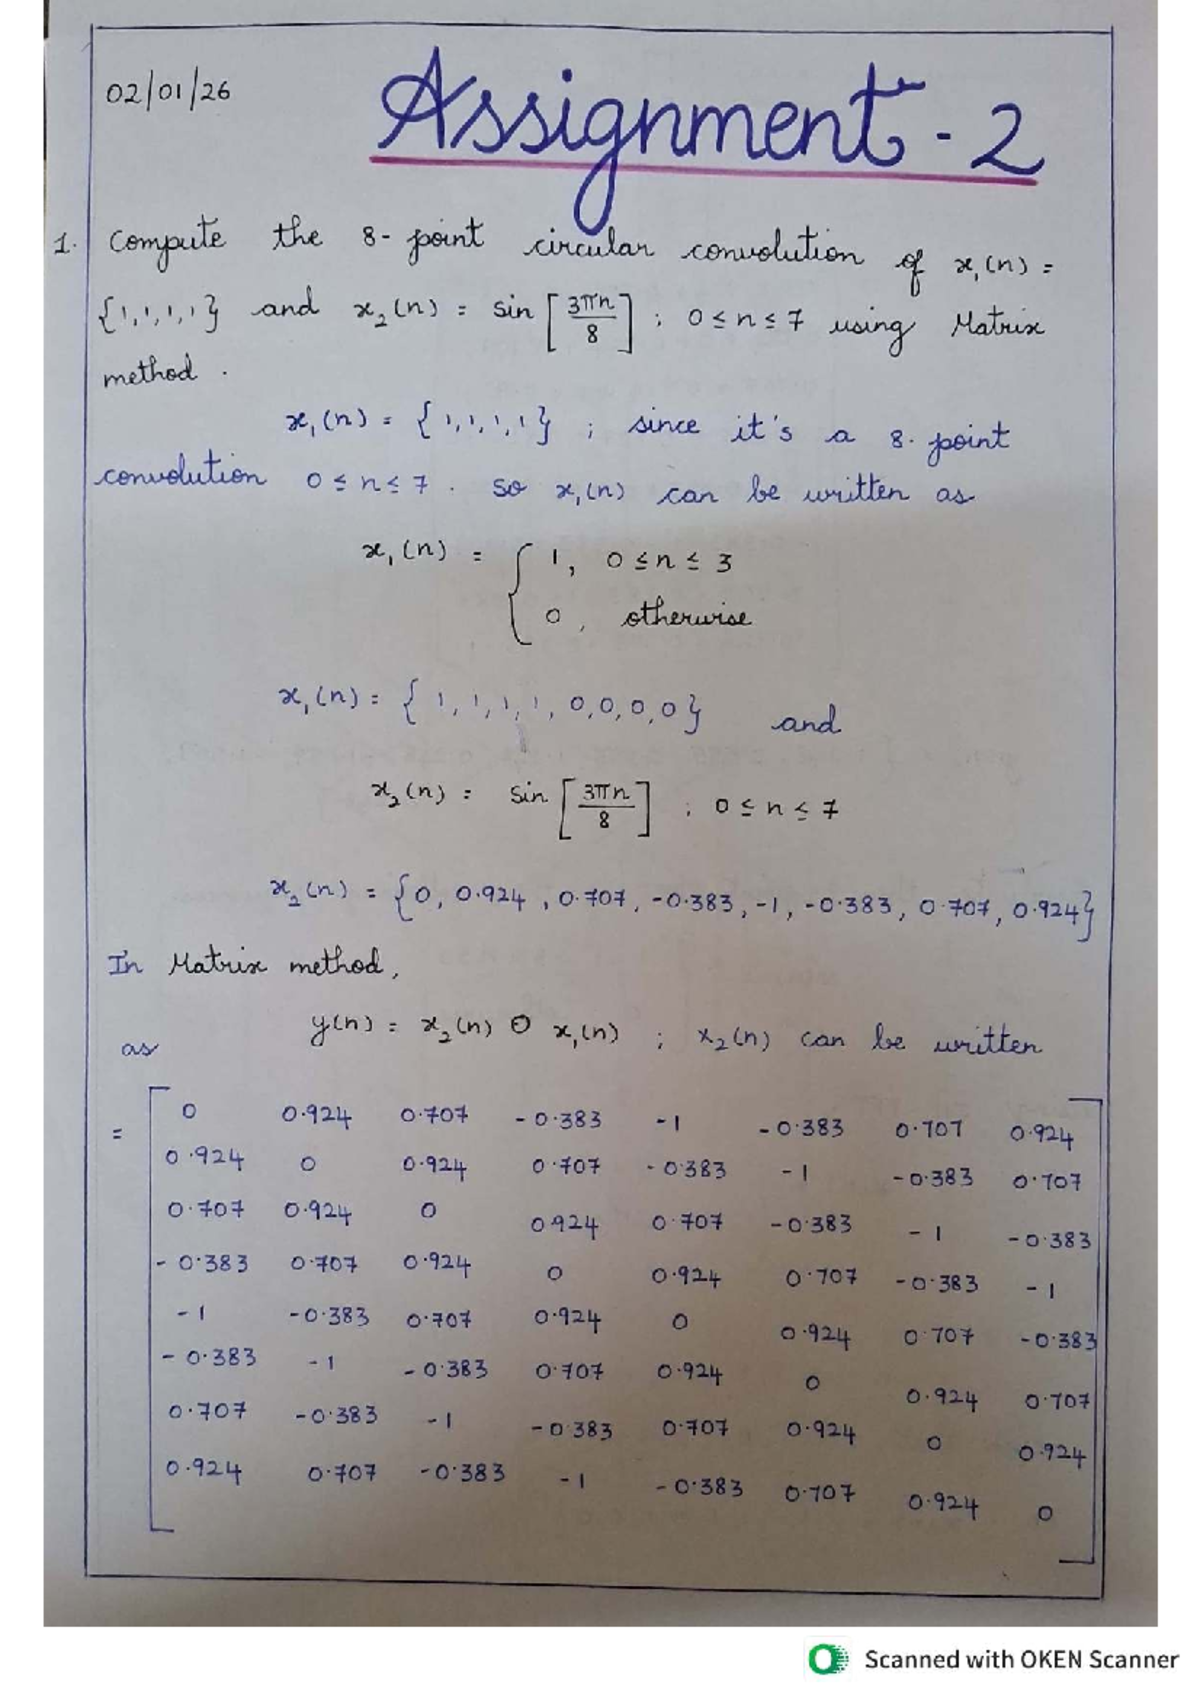 02/01/26
Assignment - 2
1. Compute the 8-point circular convolution of x₁(n) =
{1,1,1,1} and x₂(n) = sin [3πn/8] ; 0 ≤ n ≤ 7 using Matrix
method.
x₁(n) = {1,1,1,1} ; since it's a 8-point
convolution 0 ≤ n ≤ 7. so x₁(n) can be written as
x₁(n) = { 1, 0 ≤ n ≤ 3
0, otherwise
x₁(n) = {1,1,1,1,0,0,0,0} and
x₂(n) = sin [3πn/8] ; 0 ≤ n ≤ 7
x₂(n) = {0, 0.924, 0.707, -0.383, -1, -0.383, 0.707, 0.924}
In Matrix method,
y(n) = x₂(n) ⊙ x₁(n) ; x₂(n) can be written
as
= [ 0 0.924 0.707 -0.383 -1 -0.383 0.707 0.924
0.924 0 0.924 0.707 -0.383 -1 -0.383 0.707
0.707 0.924 0 0.924 0.707 -0.383 -1 -0.383
-0.383 0.707 0.924 0 0.924 0.707 -0.383 -1
-1 -0.383 0.707 0.924 0 0.924 0.707 -0.383
-0.383 -1 -0.383 0.707 0.924 0 0.924 0.707
0.707 -0.383 -1 -0.383 0.707 0.924 0 0.924
0.924 0.707 -0.383 -1 -0.383 0.707 0.924 0 ]
Scanned with OKEN Scanner